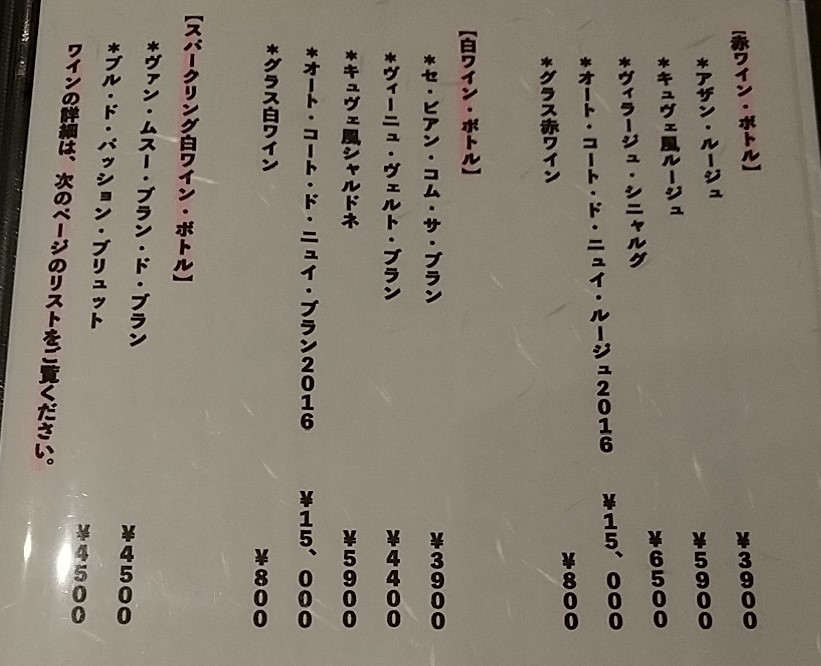 【赤ワイン・ボトル】
*アザン・ルージュ ¥3900
*キュヴェ風ルージュ ¥5900
*ヴィラージュ・シニャルグ ¥6500
*オート・コート・ド・ニュイ・ルージュ2016 ¥15、000
*グラス赤ワイン ¥800
【白ワイン・ボトル】
*セ・ビアン・コム・サ・ブラン ¥3900
*ヴィーニュ・ヴェルト・ブラン ¥4400
*キュヴェ風シャルドネ ¥5900
*オート・コート・ド・ニュイ・ブラン2016 ¥15、000
*グラス白ワイン ¥800
【スパークリング白ワイン・ボトル】
*ヴァン・ムスー・ブラン・ド・ブラン ¥4500
*ブル・ド・パッション・ブリュット ¥4500
ワインの詳細は、次のページのリストをご覧ください。